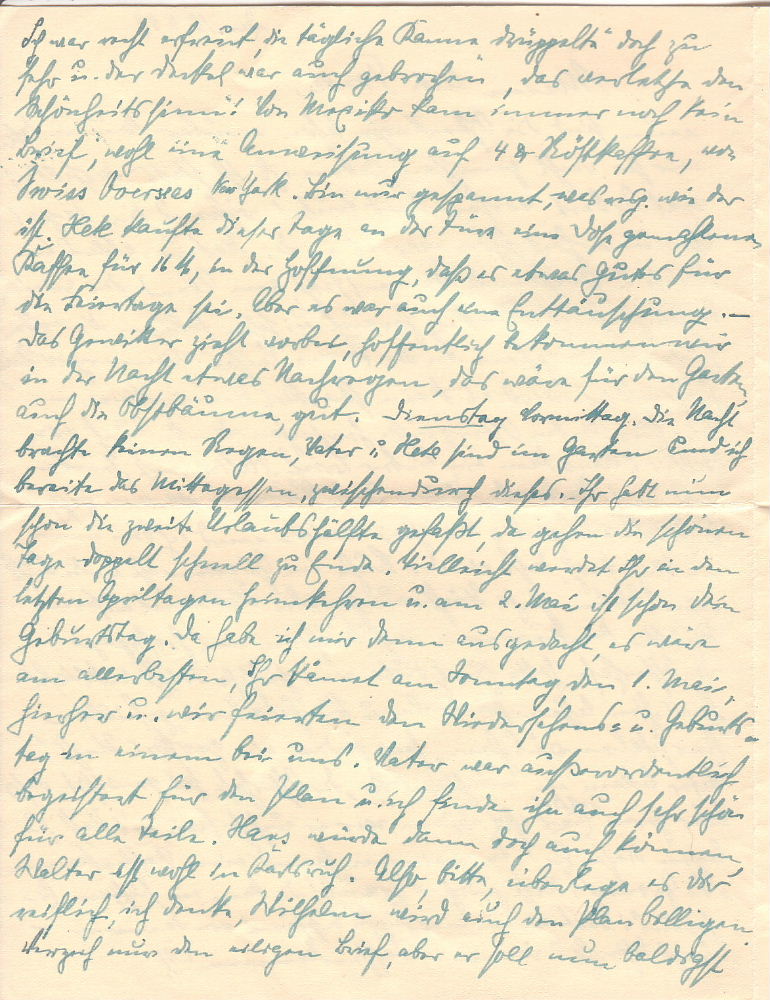 Ich war recht erfreut, die tägliche Kanne "drüppelte" doch zu
sehr u. der Deckel war auch gebrochen, das verletzte den
Schönheitssinn! Von Mexiko kam immer noch kein
Brief, wohl eine Anweisung auf 4 ℔ Röstkaffee, von
Swiss Overseas New York. Bin nur gespannt, was resp. wie der
ist. Hek kaufte dieser Tage an der Türe eine Dose gemahlenen
Kaffee für 16 M, in der Hoffnung, daß es etwas Gutes für
die Feiertage sei. Aber es war auch eine Enttäuschung. –
Das Gewitter zieht vorbei, hoffentlich bekommen wir
in der Nacht etwas Nachregen, das wäre für den Garten,
auch die Obstbäume, gut. Dienstag Vormittag. Die Nacht
brachte keinen Regen, Vater u. Hek sind im Garten und ich
bereite das Mittagessen, zwischendurch dieses. Ihr habt nun
schon die zweite Urlaubshälfte gefaßt, da gehen die schönen
Tage doppelt schnell zu Ende. Vielleicht werdet Ihr in den
letzten Apriltagen heimkehren u. am 2. Mai ist schon Dein
Geburtstag. Da habe ich mir denn ausgedacht, es wäre
am allerbesten, Ihr kämet am Sonntag, den 1. Mai,
hierher u. wir feierten den Wiedersehens= u. Geburts=
tag in einem bei uns. Vater war außerordentlich
begeistert für den Plan u. ich finde ihn auch sehr schön
für alle Teile. Hans würde dann doch auch können,
Walter ist wohl in. Also, bitte, überlege es Dir
reiflich, ich denke, Wilhelm wird auch den Plan billigen.
Verzeih nur den eiligen Brief, aber er soll nun baldigst